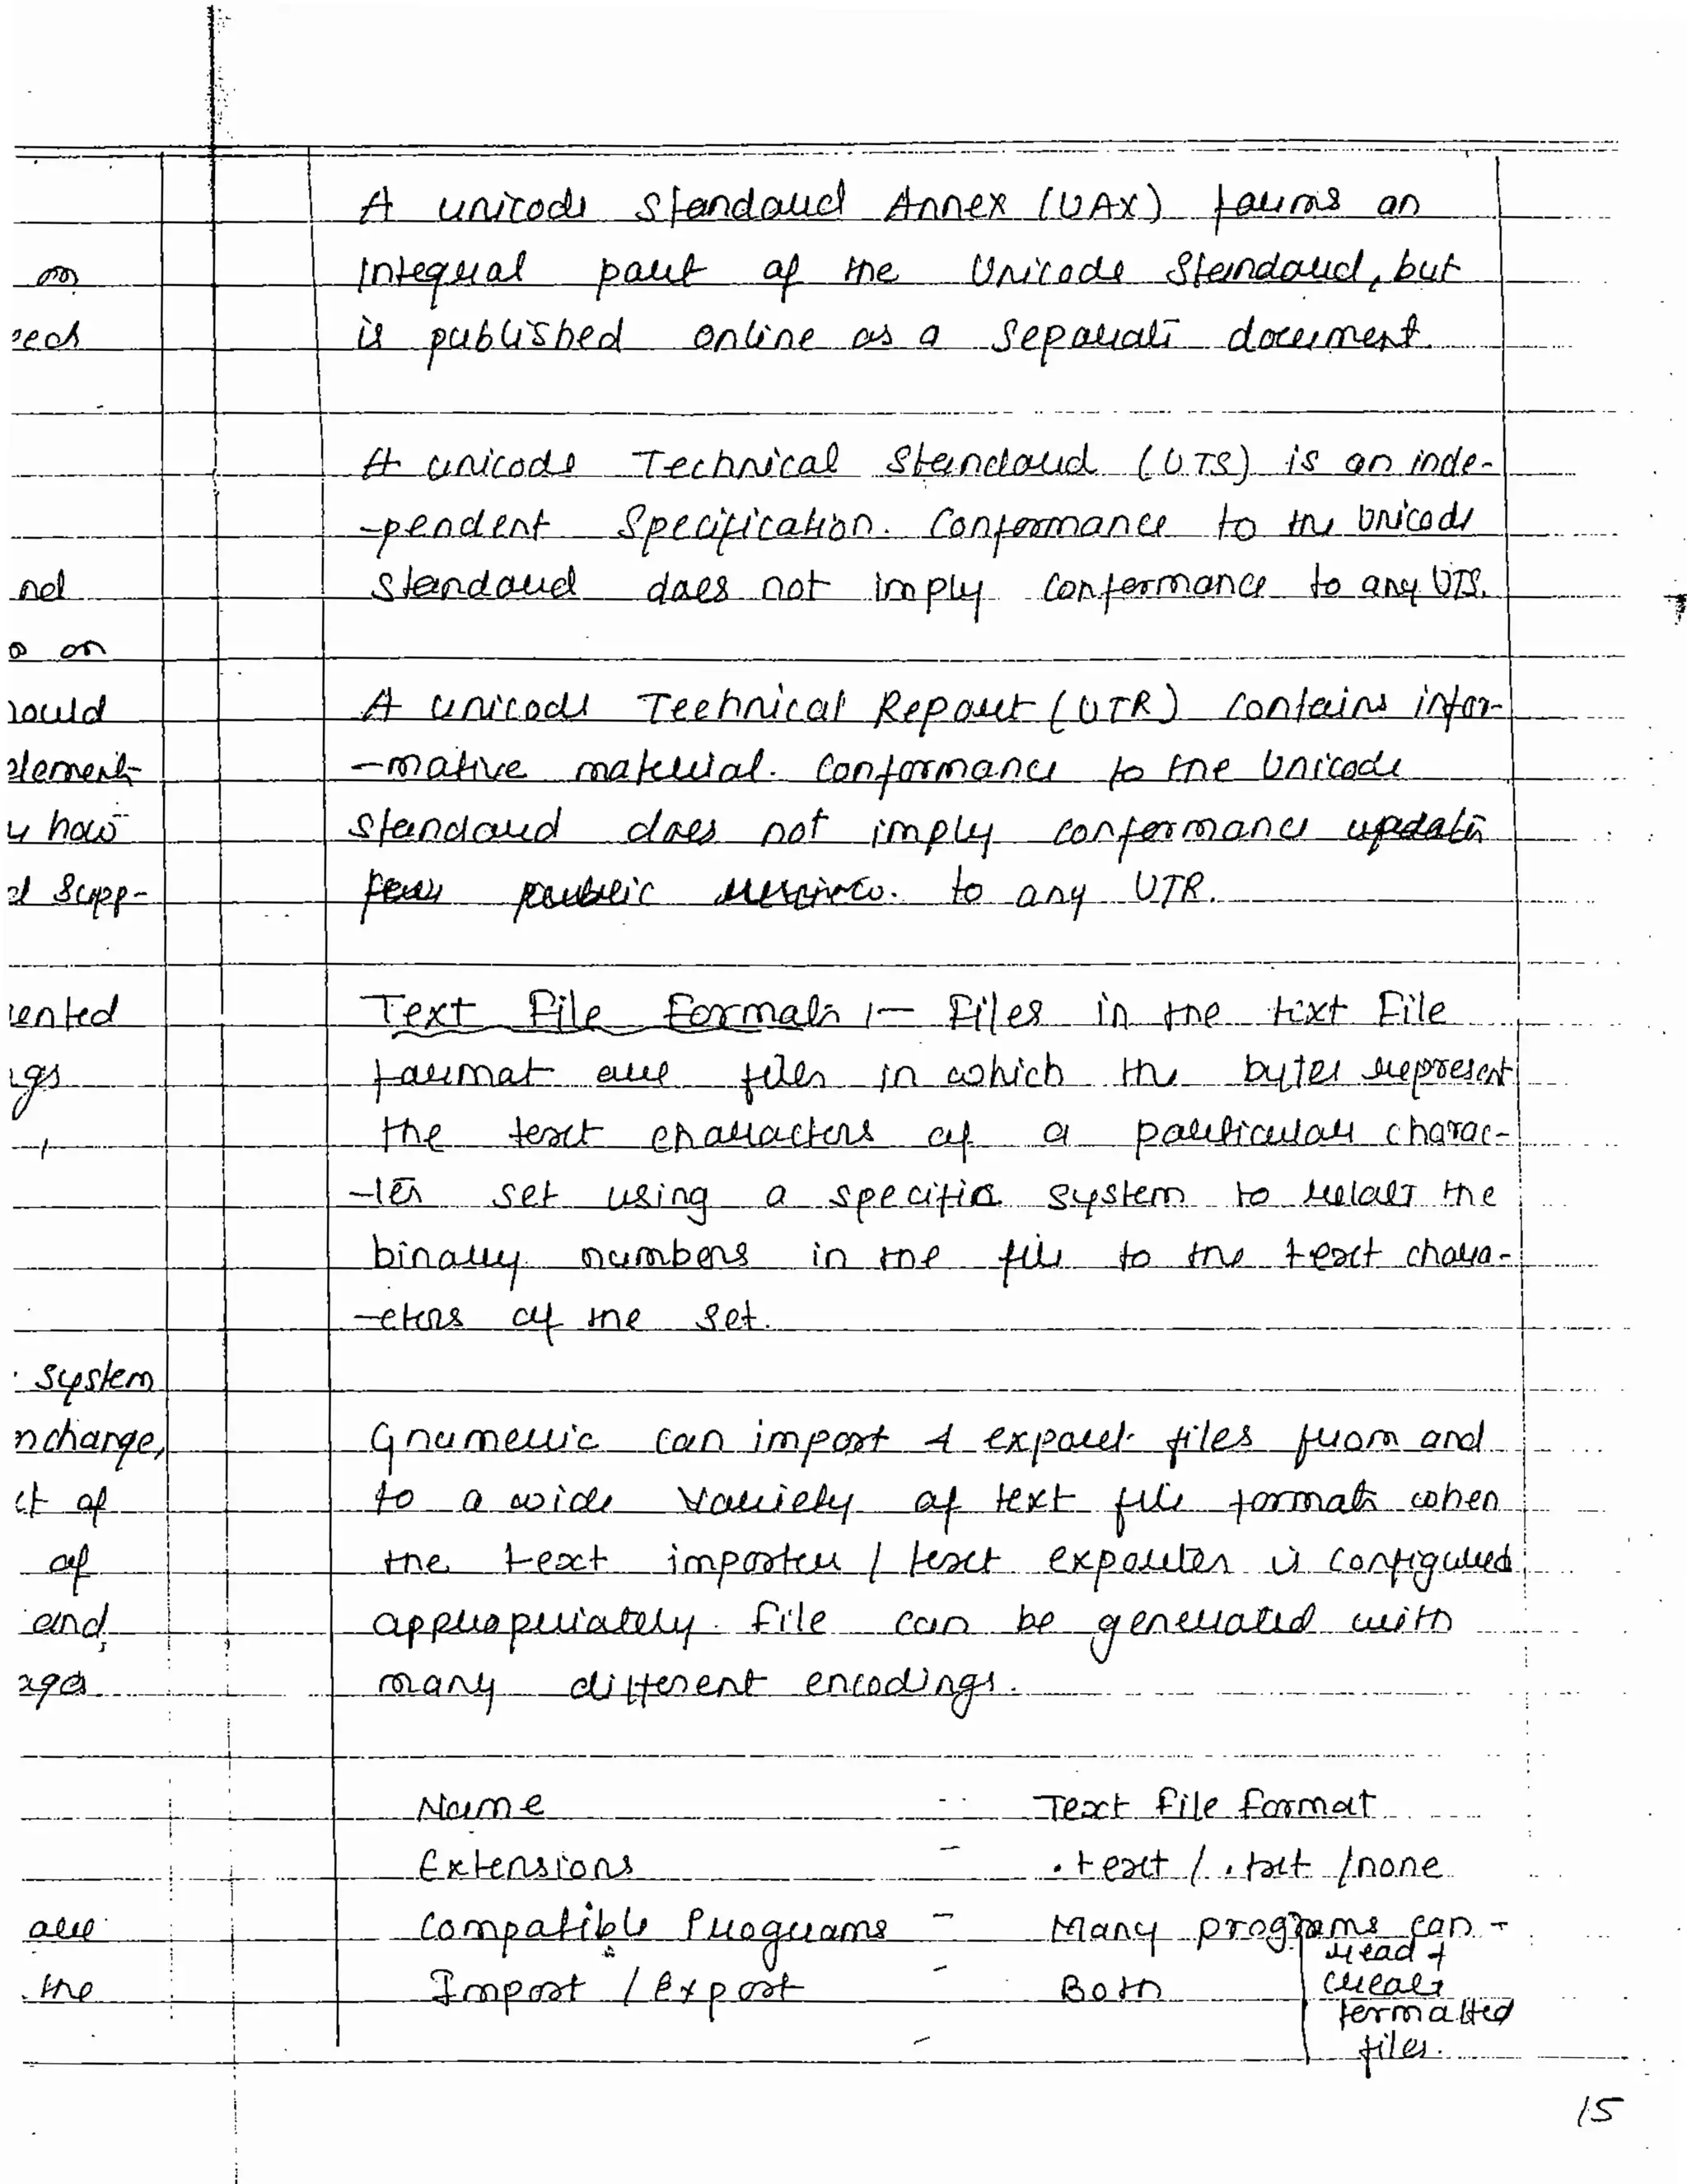 A unicode Standard Annex (UAX) forms an
Integral part of the Unicode Standard, but
is published online as a Separate document.
A unicode Technical Standard (UTS) is an inde-
-pendent Specification. Conformance to the Unicode
Standard does not imply conformance to any UTS.
A unicode Technical Report (UTR) contains infor-
-mative material. Conformance to the Unicode
Standard does not imply conformance update
for public review. to any UTR.
Text File Formats :— Files in the text File
format are files in which the bytes represent
the text characters of a particular charac-
-ter set using a specific system to relate the
binary numbers in the file to the text chara-
-cters of the set.
Gnumeric can import & export files from and
to a wide variety of text file formats when
the text importer / text exporter is configured
appropriately. File can be generated with
many different encodings.
Name - Text File Format
Extensions - .text / .txt /none
Compatible Programs - Many programs can -
read &
create
formatted
files.
Import / Export - Both
15
on
eech
nd
o on
hould
element
y how
d Supp-
ented
ngs
system
nchange,
ct of
of
and,
ages
are
the